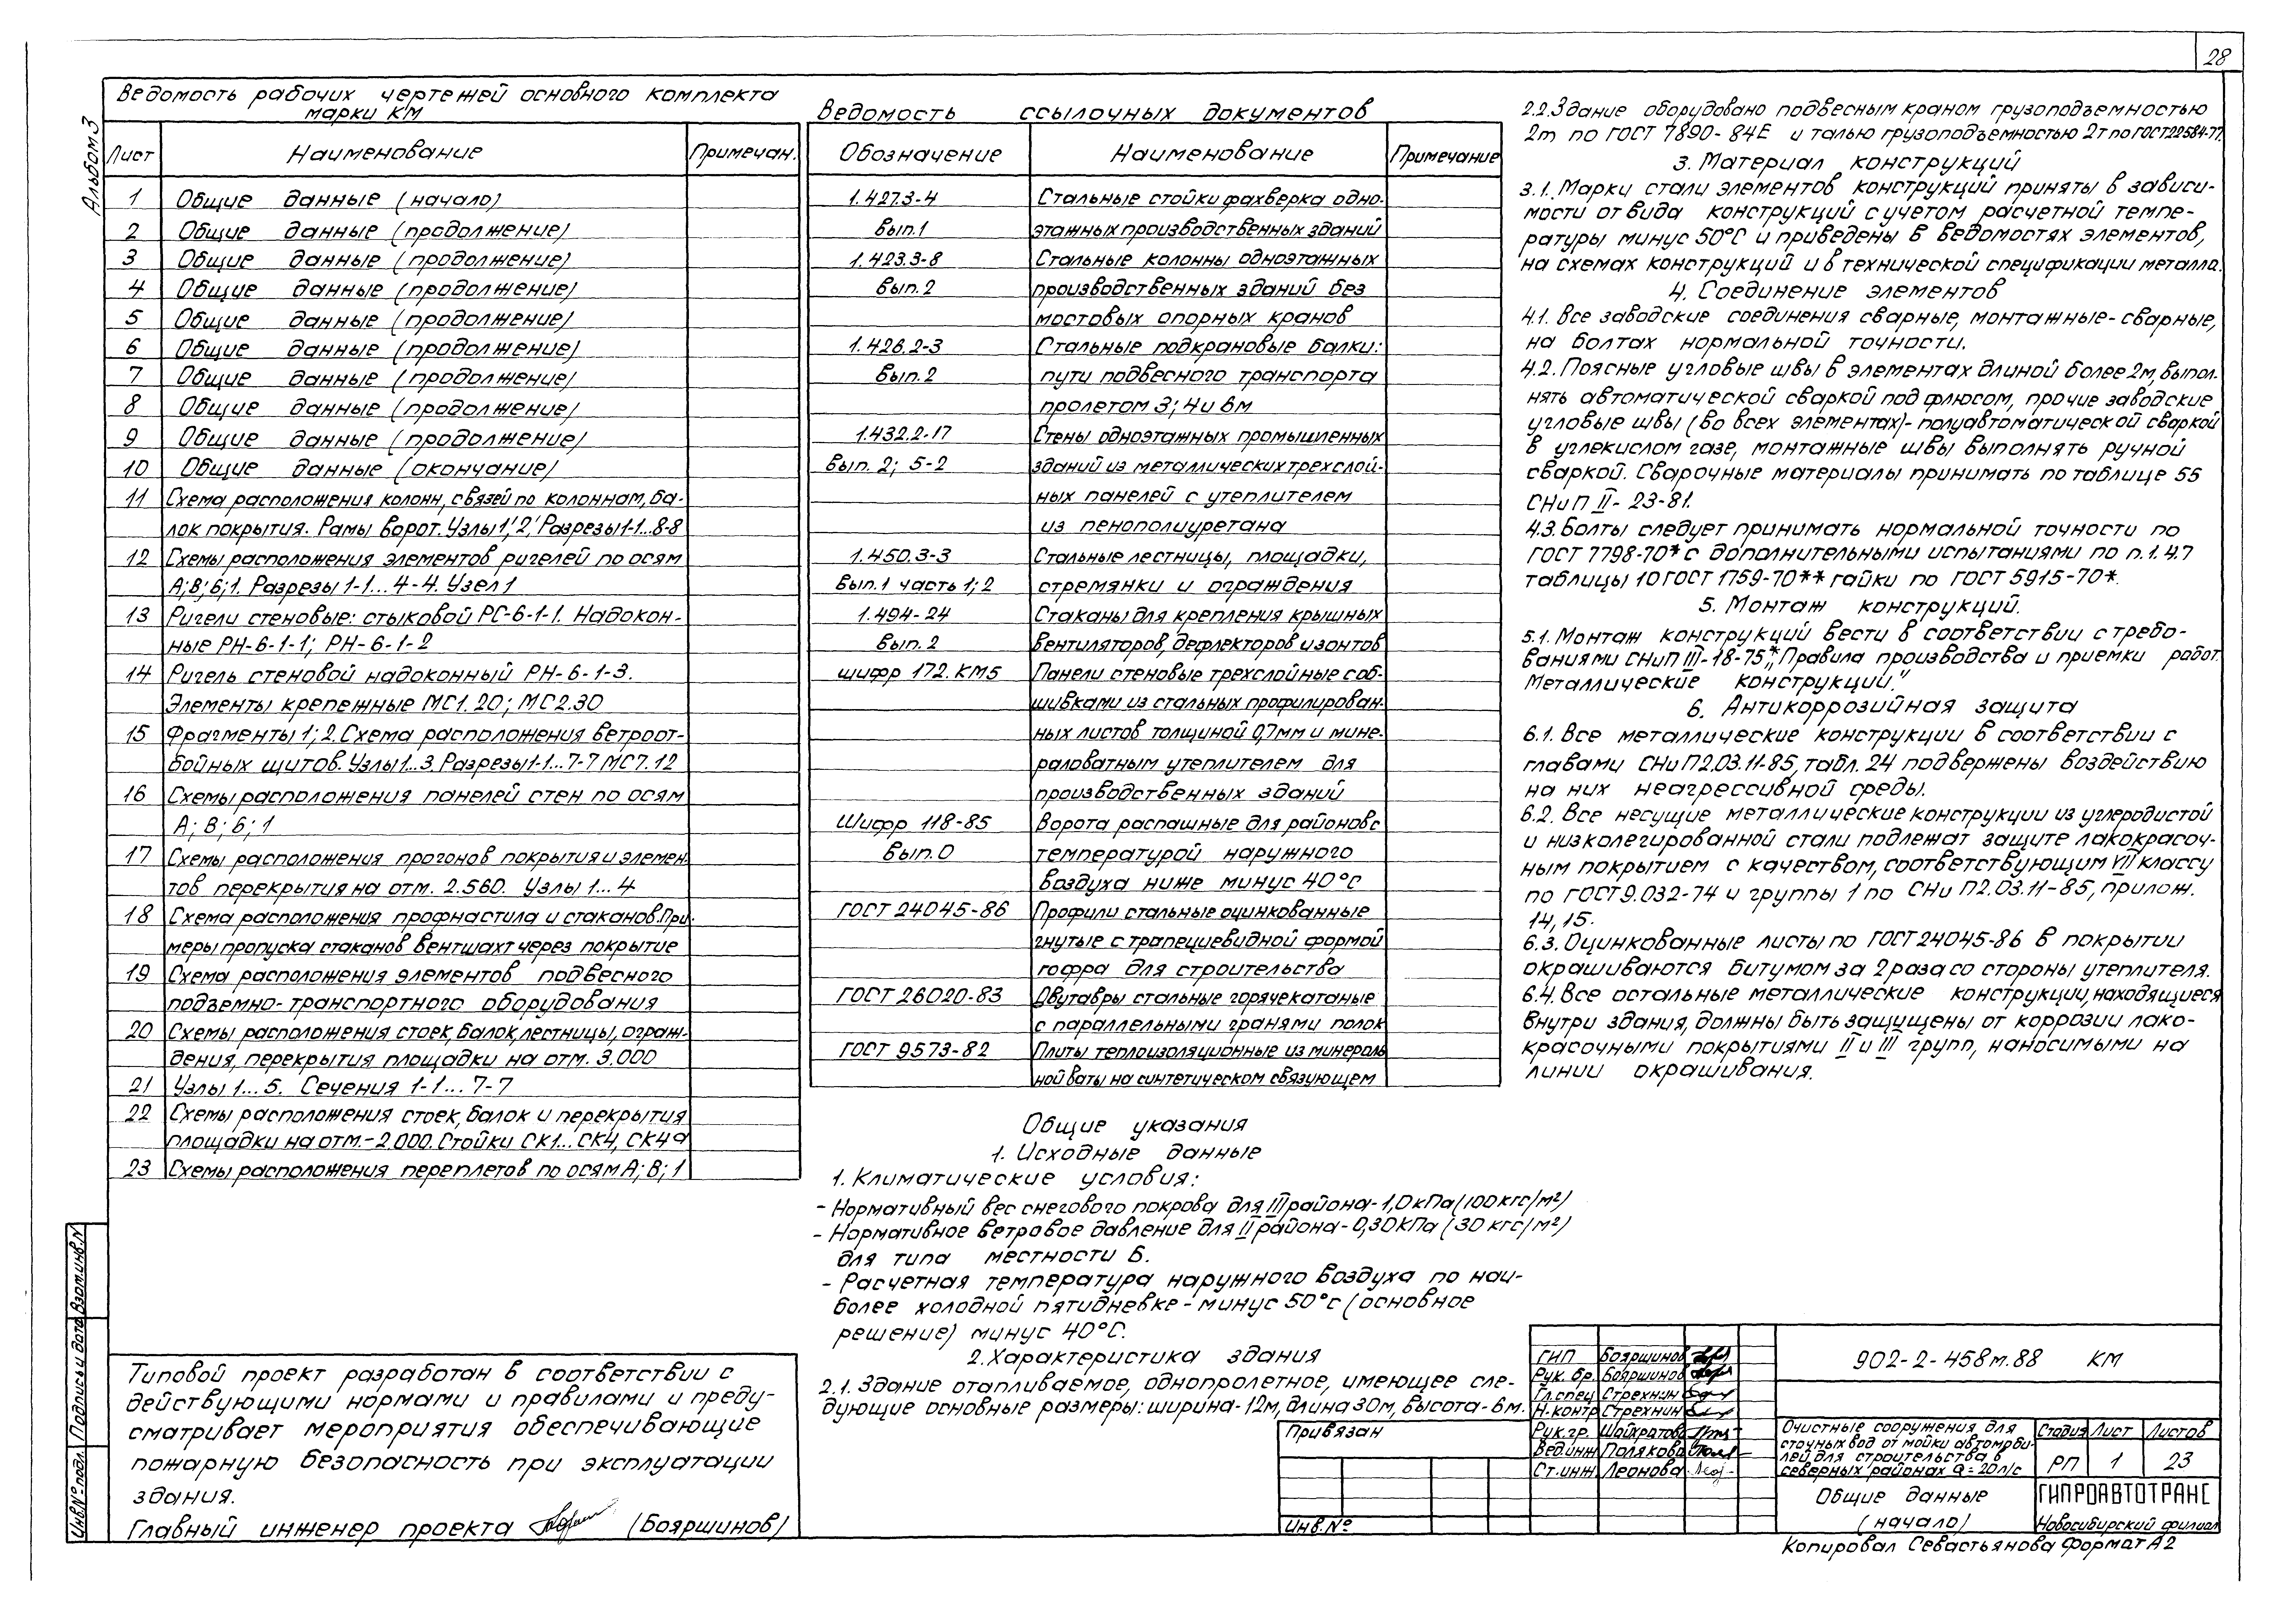 28
Альбом 3
Ведомость рабочих чертежей основного комплекта
марки КМ
Лист Наименование Примечан.
1 Общие данные (начало)
2 Общие данные (продолжение)
3 Общие данные (продолжение)
4 Общие данные (продолжение)
5 Общие данные (продолжение)
6 Общие данные (продолжение)
7 Общие данные (продолжение)
8 Общие данные (продолжение)
9 Общие данные (продолжение)
10 Общие данные (окончание)
11 Схема расположения колонн, связей по колоннам, ба-
лок покрытия. Рамы ворот. Узлы 1', 2' Разрезы 1-1...8-8
12 Схемы расположения элементов ригелей по осям
А; В; Б; 1. Разрезы 1-1...4-4. Узел 1
13 Ригели стеновые: стыковой РС-6-1-1. Надокон-
ные РН-6-1-1; РН-6-1-2
14 Ригель стеновой надоконный РН-6-1-3.
Элементы крепежные МС1.20; МС2.30
15 Фрагменты 1; 2. Схема расположения ветроот-
бойных щитов. Узлы 1...3. Разрезы 1-1...7-7 МС7.12
16 Схемы расположения панелей стен по осям
А; В; Б; 1
17 Схемы расположения прогонов покрытия и элемен-
тов перекрытия на отм. 2.560. Узлы 1...4
18 Схема расположения профнастила и стаканов. При-
меры пропуска стаканов вентшахт через покрытие
19 Схема расположения элементов подвесного
подъемно-транспортного оборудования
20 Схемы расположения стоек, балок, лестницы, ограж-
дения, перекрытия площадки на отм. 3.000
21 Узлы 1...5. Сечения 1-1...7-7
22 Схемы расположения стоек, балок и перекрытия
площадки на отм.-2.000. Стойки СК1...СК4, СК4а
23 Схемы расположения переплетов по осям А; В; 1
Типовой проект разработан в соответствии с
действующими нормами и правилами и преду-
сматривает мероприятия обеспечивающие
пожарную безопасность при эксплуатации
здания.
Главный инженер проекта (Бояршинов)
Инв.№ подл. Подпись и дата Взам.инв.N
Ведомость ссылочных документов
Обозначение Наименование Примечание
1.427.3-4 Стальные стойки фахверка одно-
вып.1 этажных производственных зданий
1.423.3-8 Стальные колонны одноэтажных
вып.2 производственных зданий без
мостовых опорных кранов
1.426.2-3 Стальные подкрановые балки:
вып.2 пути подвесного транспорта
пролетом 3; 4 и 6м
1.432.2-17 Стены одноэтажных промышленных
вып. 2; 5-2 зданий из металлических трехслой-
ных панелей с утеплителем
из пенополиуретана
1.450.3-3 Стальные лестницы, площадки,
вып.1 часть 1; 2 стремянки и ограждения
1.494-24 Стаканы для крепления крышных
вып. 2 вентиляторов, дефлекторов и зонтов
шифр 172.КМ5 Панели стеновые трехслойные с об-
шивками из стальных профилирован-
ных листов толщиной 0,7мм и мине-
раловатным утеплителем для
производственных зданий
Шифр 118-85 Ворота распашные для районов с
вып.0 температурой наружного
воздуха ниже минус 40°С
ГОСТ 24045-86 Профили стальные оцинкованные
гнутые с трапециевидной формой
гофра для строительства
ГОСТ 26020-83 Двутавры стальные горячекатаные
с параллельными гранями полок
ГОСТ 9573-82 Плиты теплоизоляционные из минераль
ной ваты на синтетическом связующем
Общие указания
1. Исходные данные
1. Климатические условия:
- Нормативный вес снегового покрова для III района-1,0 кПа (100 кгс/м²)
- Нормативное ветровое давление для II района-0,30кПа (30 кгс/м²)
для типа местности Б.
- Расчетная температура наружного воздуха по наи-
более холодной пятидневке - минус 50°с (основное
решение) минус 40°С.
2. Характеристика здания
2.1. Здание отапливаемое, однопролетное, имеющее сле-
дующие основные размеры: ширина-12м, длина 30м, высота-6м.
2.2. Здание оборудовано подвесным краном грузоподъемностью
2т по ГОСТ 7890-84Е и талью грузоподъемностью 2т по ГОСТ22584-77.
3. Материал конструкций
3.1. Марки стали элементов конструкций приняты в зависи-
мости от вида конструкций с учетом расчетной темпе-
ратуры минус 50°С и приведены в ведомостях элементов,
на схемах конструкций и в технической спецификации металла.
4. Соединение элементов
4.1. Все заводские соединения сварные, монтажные-сварные,
на болтах нормальной точности.
4.2. Поясные угловые швы в элементах длиной более 2м, выпол.
нять автоматической сваркой под флюсом, прочие заводские
угловые швы (во всех элементах)-полуавтоматической сваркой
в углекислом газе, монтажные швы выполнять ручной
сваркой. Сварочные материалы принимать по таблице 55
СНиП II-23-81.
4.3. Болты следует принимать нормальной точности по
ГОСТ 7798-70* с дополнительными испытаниями по п. 1.4.7
таблицы 10 ГОСТ 1759-70** гайки по ГОСТ 5915-70*.
5. Монтаж конструкций.
5.1. Монтаж конструкций вести в соответствии с требо-
ваниями СНиП III-18-75* „Правила производства и приемки работ.
Металлические конструкции."
6. Антикоррозийная защита
6.1. Все металлические конструкции в соответствии с
главами СНиП2.03.11-85, табл. 24 подвержены воздействию
на них неагрессивной среды.
6.2. Все несущие металлические конструкции из углеродистой
и низколегированной стали подлежат защите лакокрасоч-
ным покрытием с качеством, соответствующим VII классу
по ГОСТ9.032-74 и группы 1 по СНиП2.03.11-85, прилож.
14, 15.
6.3. Оцинкованные листы по ГОСТ 24045-86 в покрытии
окрашиваются битумом за 2 раза со стороны утеплителя.
6.4. Все остальные металлические конструкции, находящиеся
внутри здания, должны быть защищены от коррозии лако-
красочными покрытиями II и III групп, наносимыми на
линии окрашивания.
Привязан
Инв.№
ГИП Бояршинов
Рук. бр. Бояршинов
Гл.спец Стрехнин
Н-контр Стрехнин
Рук.гр. Шайхратова
Вед.инж Полякова
Ст.инж Леонова
902-2-458м.88 КМ
Очистные сооружения для
сточных вод от мойки автомоби-
лей для строительства в
северных районах Q=20л/с
Стадия Лист Листов
РП 1 23
Общие данные
(начало)
ГИПРОАВТОТРАНС
Новосибирский филиал
Копировал Севастьянова Формат А2